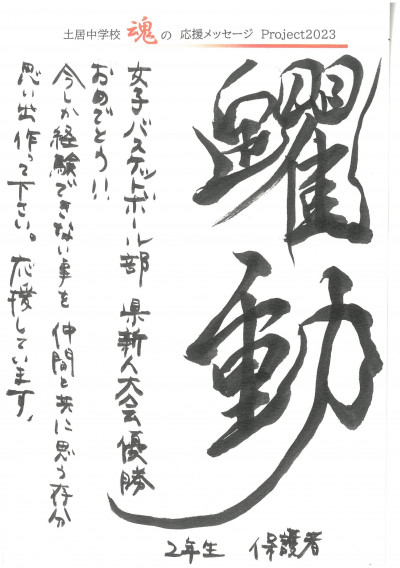 土居中学校 魂の 応援メッセージ Project2023
躍動
女子バスケットボール部 県新人大会優勝
おめでとう!!
今しか経験できない事を 仲間と共に思う存分
思い出作って下さい。応援しています。
2年生 保護者